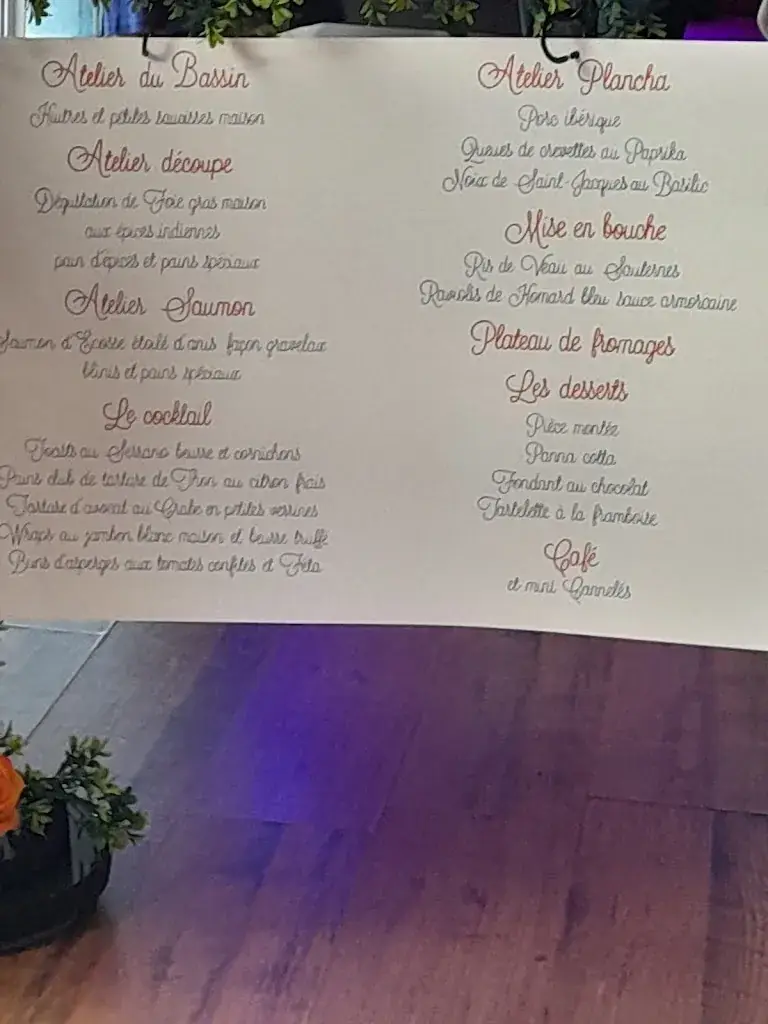 Atelier du Bassin
Huîtres et petites saucisses maison
Atelier découpe
Dégustation de Foie gras maison
aux épices indiennes
pain d'épices et pains spéciaux
Atelier Saumon
Saumon d'Ecosse étoilé d'anis façon gravelax
blinis et pains spéciaux
Le cocktail
Toasts au Serrano beurre et cornichons
Pains club de tartare de Thon au citron frais
Tartare d'avocat au Crabe en petites verrines
Wraps au jambon blanc maison et beurre truffé
Buns d'asperges aux tomates confites et Féta
Atelier Plancha
Porc ibérique
Queues de crevettes au Paprika
Noix de Saint-Jacques au Basilic
Mise en bouche
Ris de Veau au Sauternes
Raviolis de Homard bleu sauce armoricaine
Plateau de fromages
Les desserts
Pièce montée
Panna cotta
Fondant au chocolat
Tartelette à la framboise
Café
et mini Cannelés